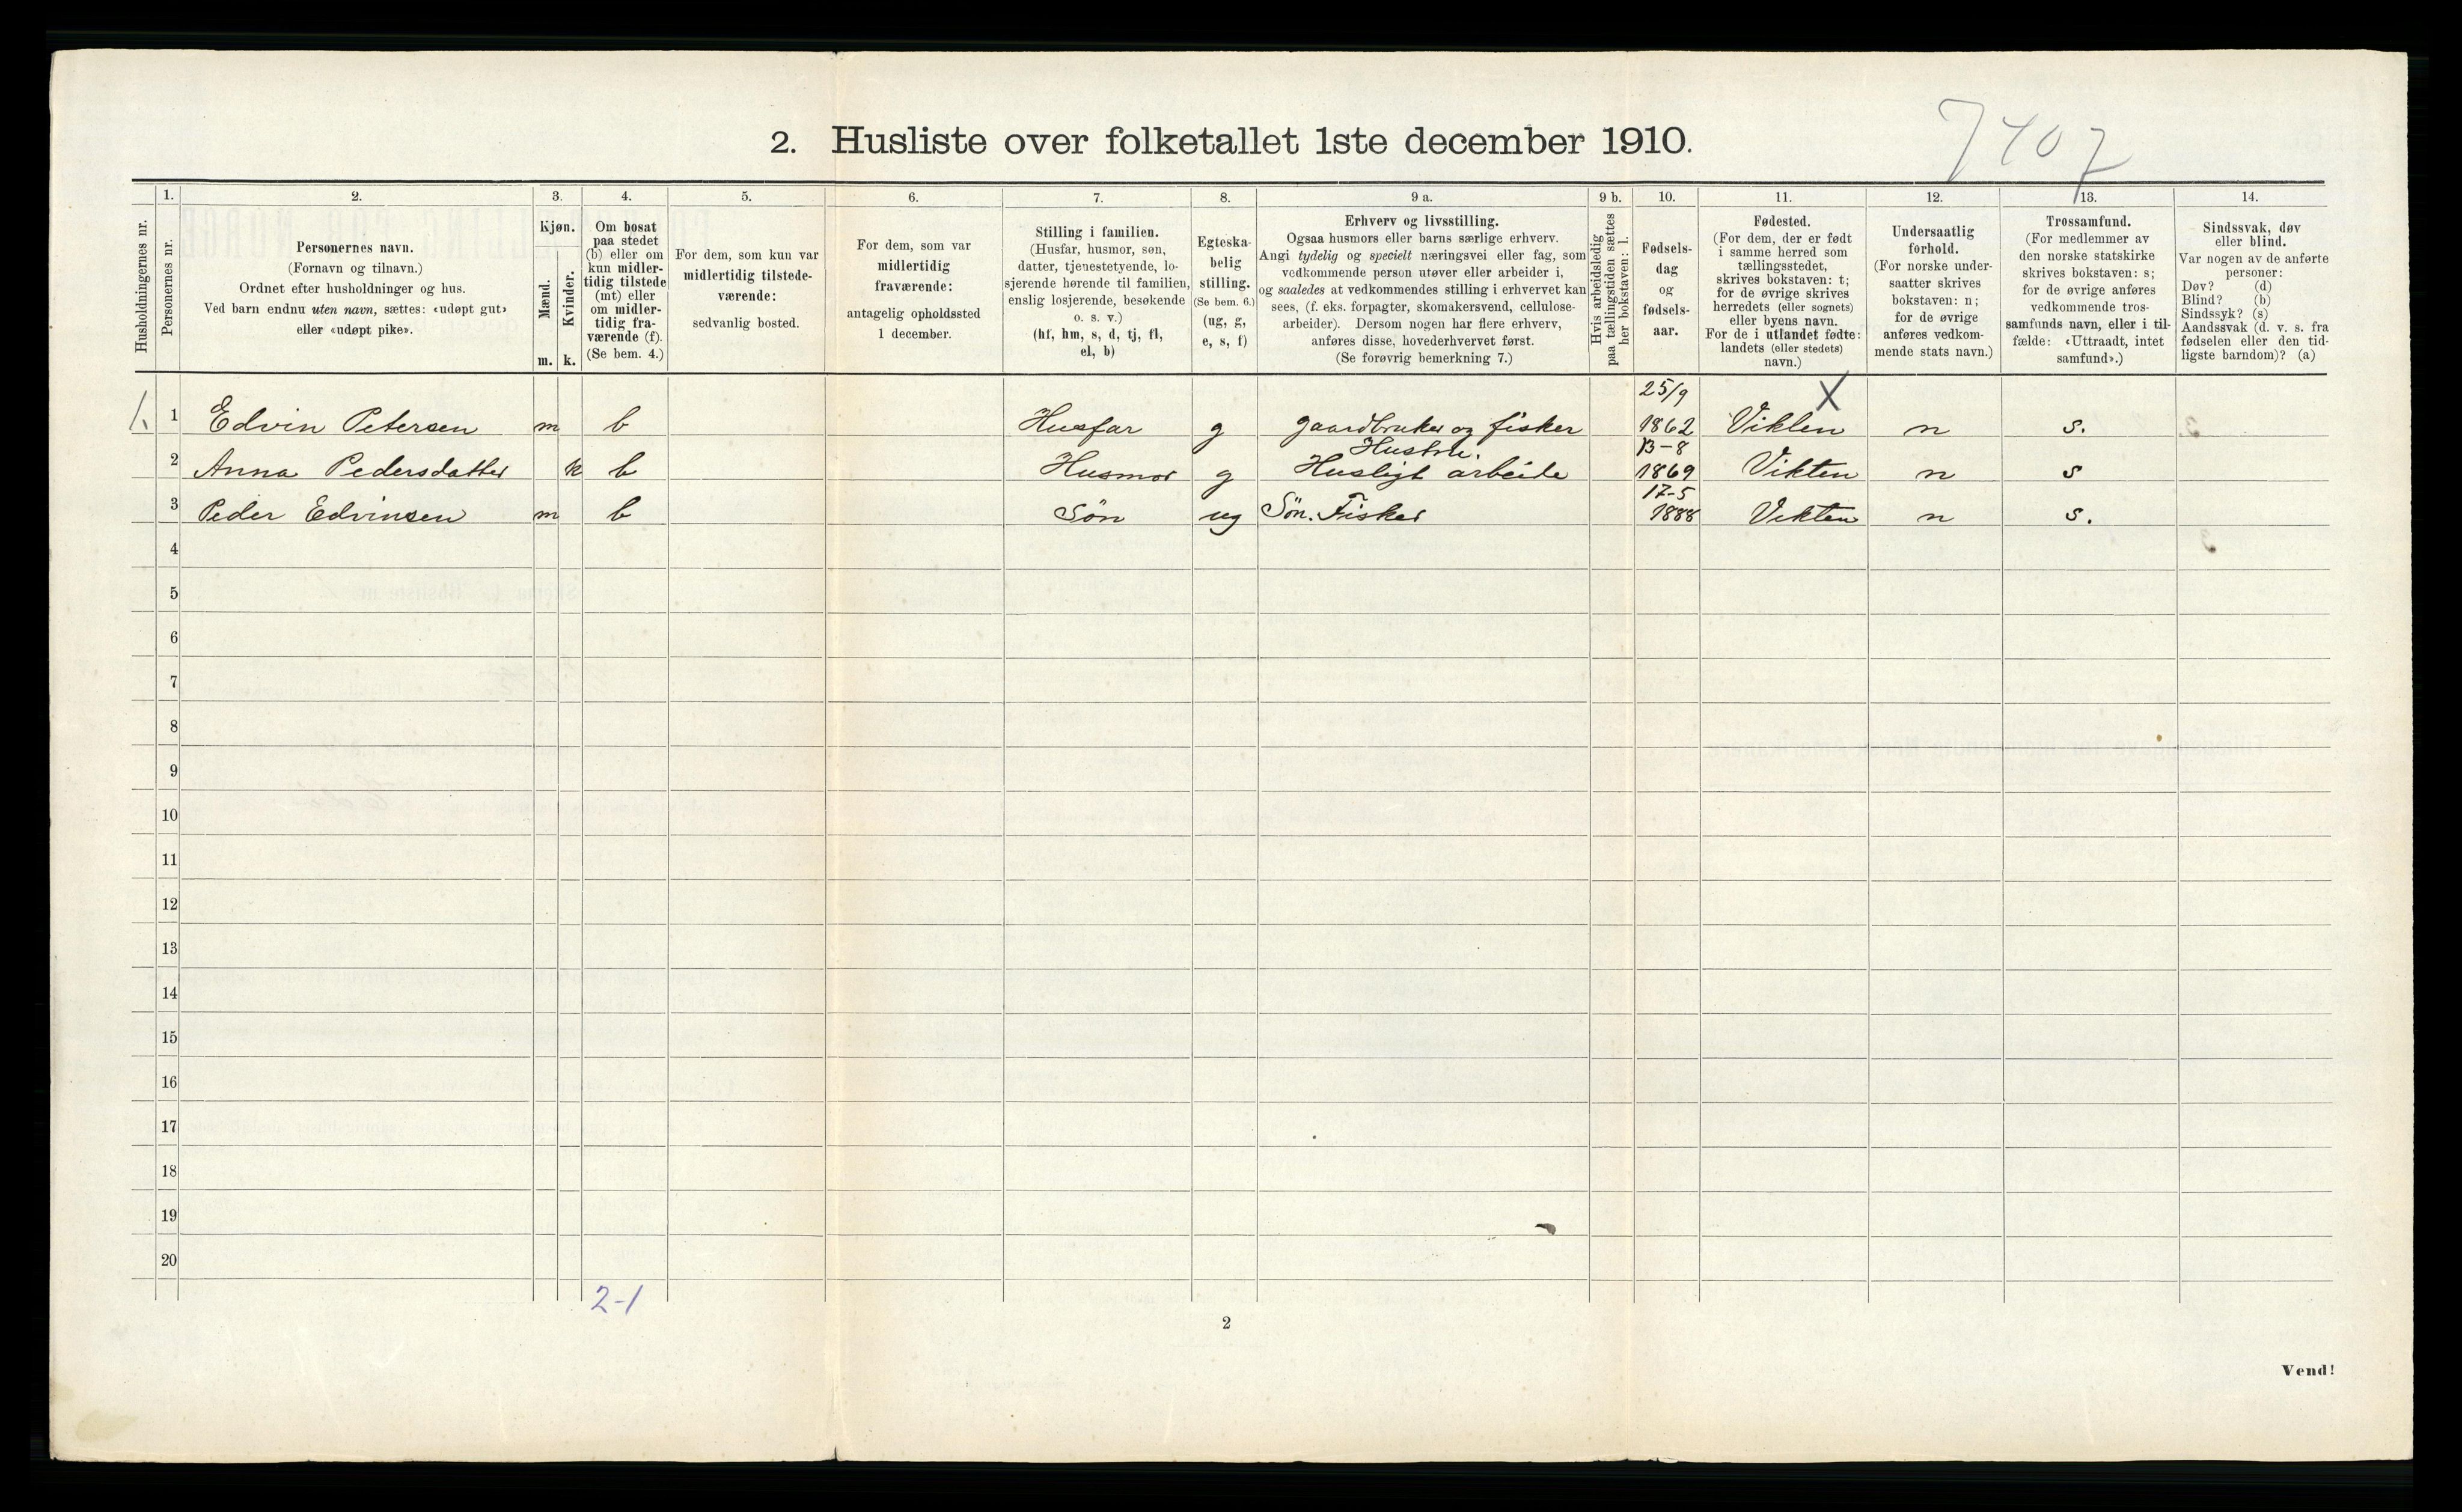 7407
2. Husliste over folketallet 1ste december 1910.
Husholdningernes nr.
1.
Personernes nr.
2.
Personernes navn.
(Fornavn og tilnavn.)
Ordnet efter husholdninger og hus.
Ved barn endnu uten navn, sættes: «udøpt gut»
eller «udøpt pike».
3.
Kjøn.
Mænd.
Kvinder.
m. k.
4.
Om bosat
paa stedet
(b) eller om
kun midler-
tidig tilstede
(mt) eller
om midler-
tidig fra-
værende (f).
(Se bem. 4.)
5.
For dem, som kun var
midlertidig tilstede-
værende:
sedvanlig bosted.
6.
For dem, som var
midlertidig
fraværende:
antagelig opholdssted
1 december.
7.
Stilling i familien.
(Husfar, husmor, søn,
datter, tjenestetyende, lo-
sjerende hørende til familien,
enslig losjerende, besøkende
o. s. v.)
(hf, hm, s, d, tj, fl,
el, b)
8.
Egteska-
belig
stilling.
(Se bem. 6.)
(ug, g,
e, s, f)
9 a.
Erhverv og livsstilling.
Ogsaa husmors eller barns særlige erhverv.
Angi tydelig og specielt næringsvei eller fag, som
vedkommende person utøver eller arbeider i,
og saaledes at vedkommendes stilling i erhvervet kan
sees, (f. eks. forpagter, skomakersvend, cellulose-
arbeider). Dersom nogen har flere erhverv,
anføres disse, hovederhvervet først.
(Se forøvrig bemerkning 7.)
9 b.
Hvis arbeidsledig
paa tællingstiden sættes
her bokstaven: l.
10.
Fødsels-
dag
og
fødsels-
aar.
11.
Fødested.
(For dem, der er født
i samme herred som
tællingsstedet,
skrives bokstaven: t;
for de øvrige skrives
herredets (eller sognets)
eller byens navn.
For de i utlandet fødte:
landets (eller stedets)
navn.)
12.
Undersaatlig
forhold.
(For norske under-
saatter skrives
bokstaven: n;
for de øvrige
anføres vedkom-
mende stats navn.)
13.
Trossamfund.
(For medlemmer av
den norske statskirke
skrives bokstaven: s;
for de øvrige anføres
vedkommende tros-
samfunds navn, eller i til-
fælde: «Uttraadt, intet
samfund».)
14.
Sindssvak, døv
eller blind.
Var nogen av de anførte
personer:
Døv? (d)
Blind? (b)
Sindssyk? (s)
Aandssvak (d. v. s. fra
fødselen eller den tid-
ligste barndom)? (a)
25/9 X
1. 1 Edvin Petersen m b Husfar g gaardbruker og fisker 1862 Vikten n s.
Hustru. 13-8
2 Anna Pedersdatter k b Husmor g Husligt arbeide 1869 Vikten n s
17-5
3 Peder Edvinsen m b Søn ug Søn. Fisker 1888 Vikten n s.
4
5
6
7
8
9
10
11
12
13
14
15
16
17
18
19
20
2-1
2
Vend!